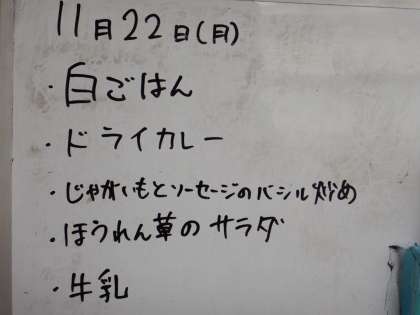 11月22日(月)
・白ごはん
・ドライカレー
・じゃがいもとソーセージのバシル炒め
・ほうれん草のサラダ
・牛乳